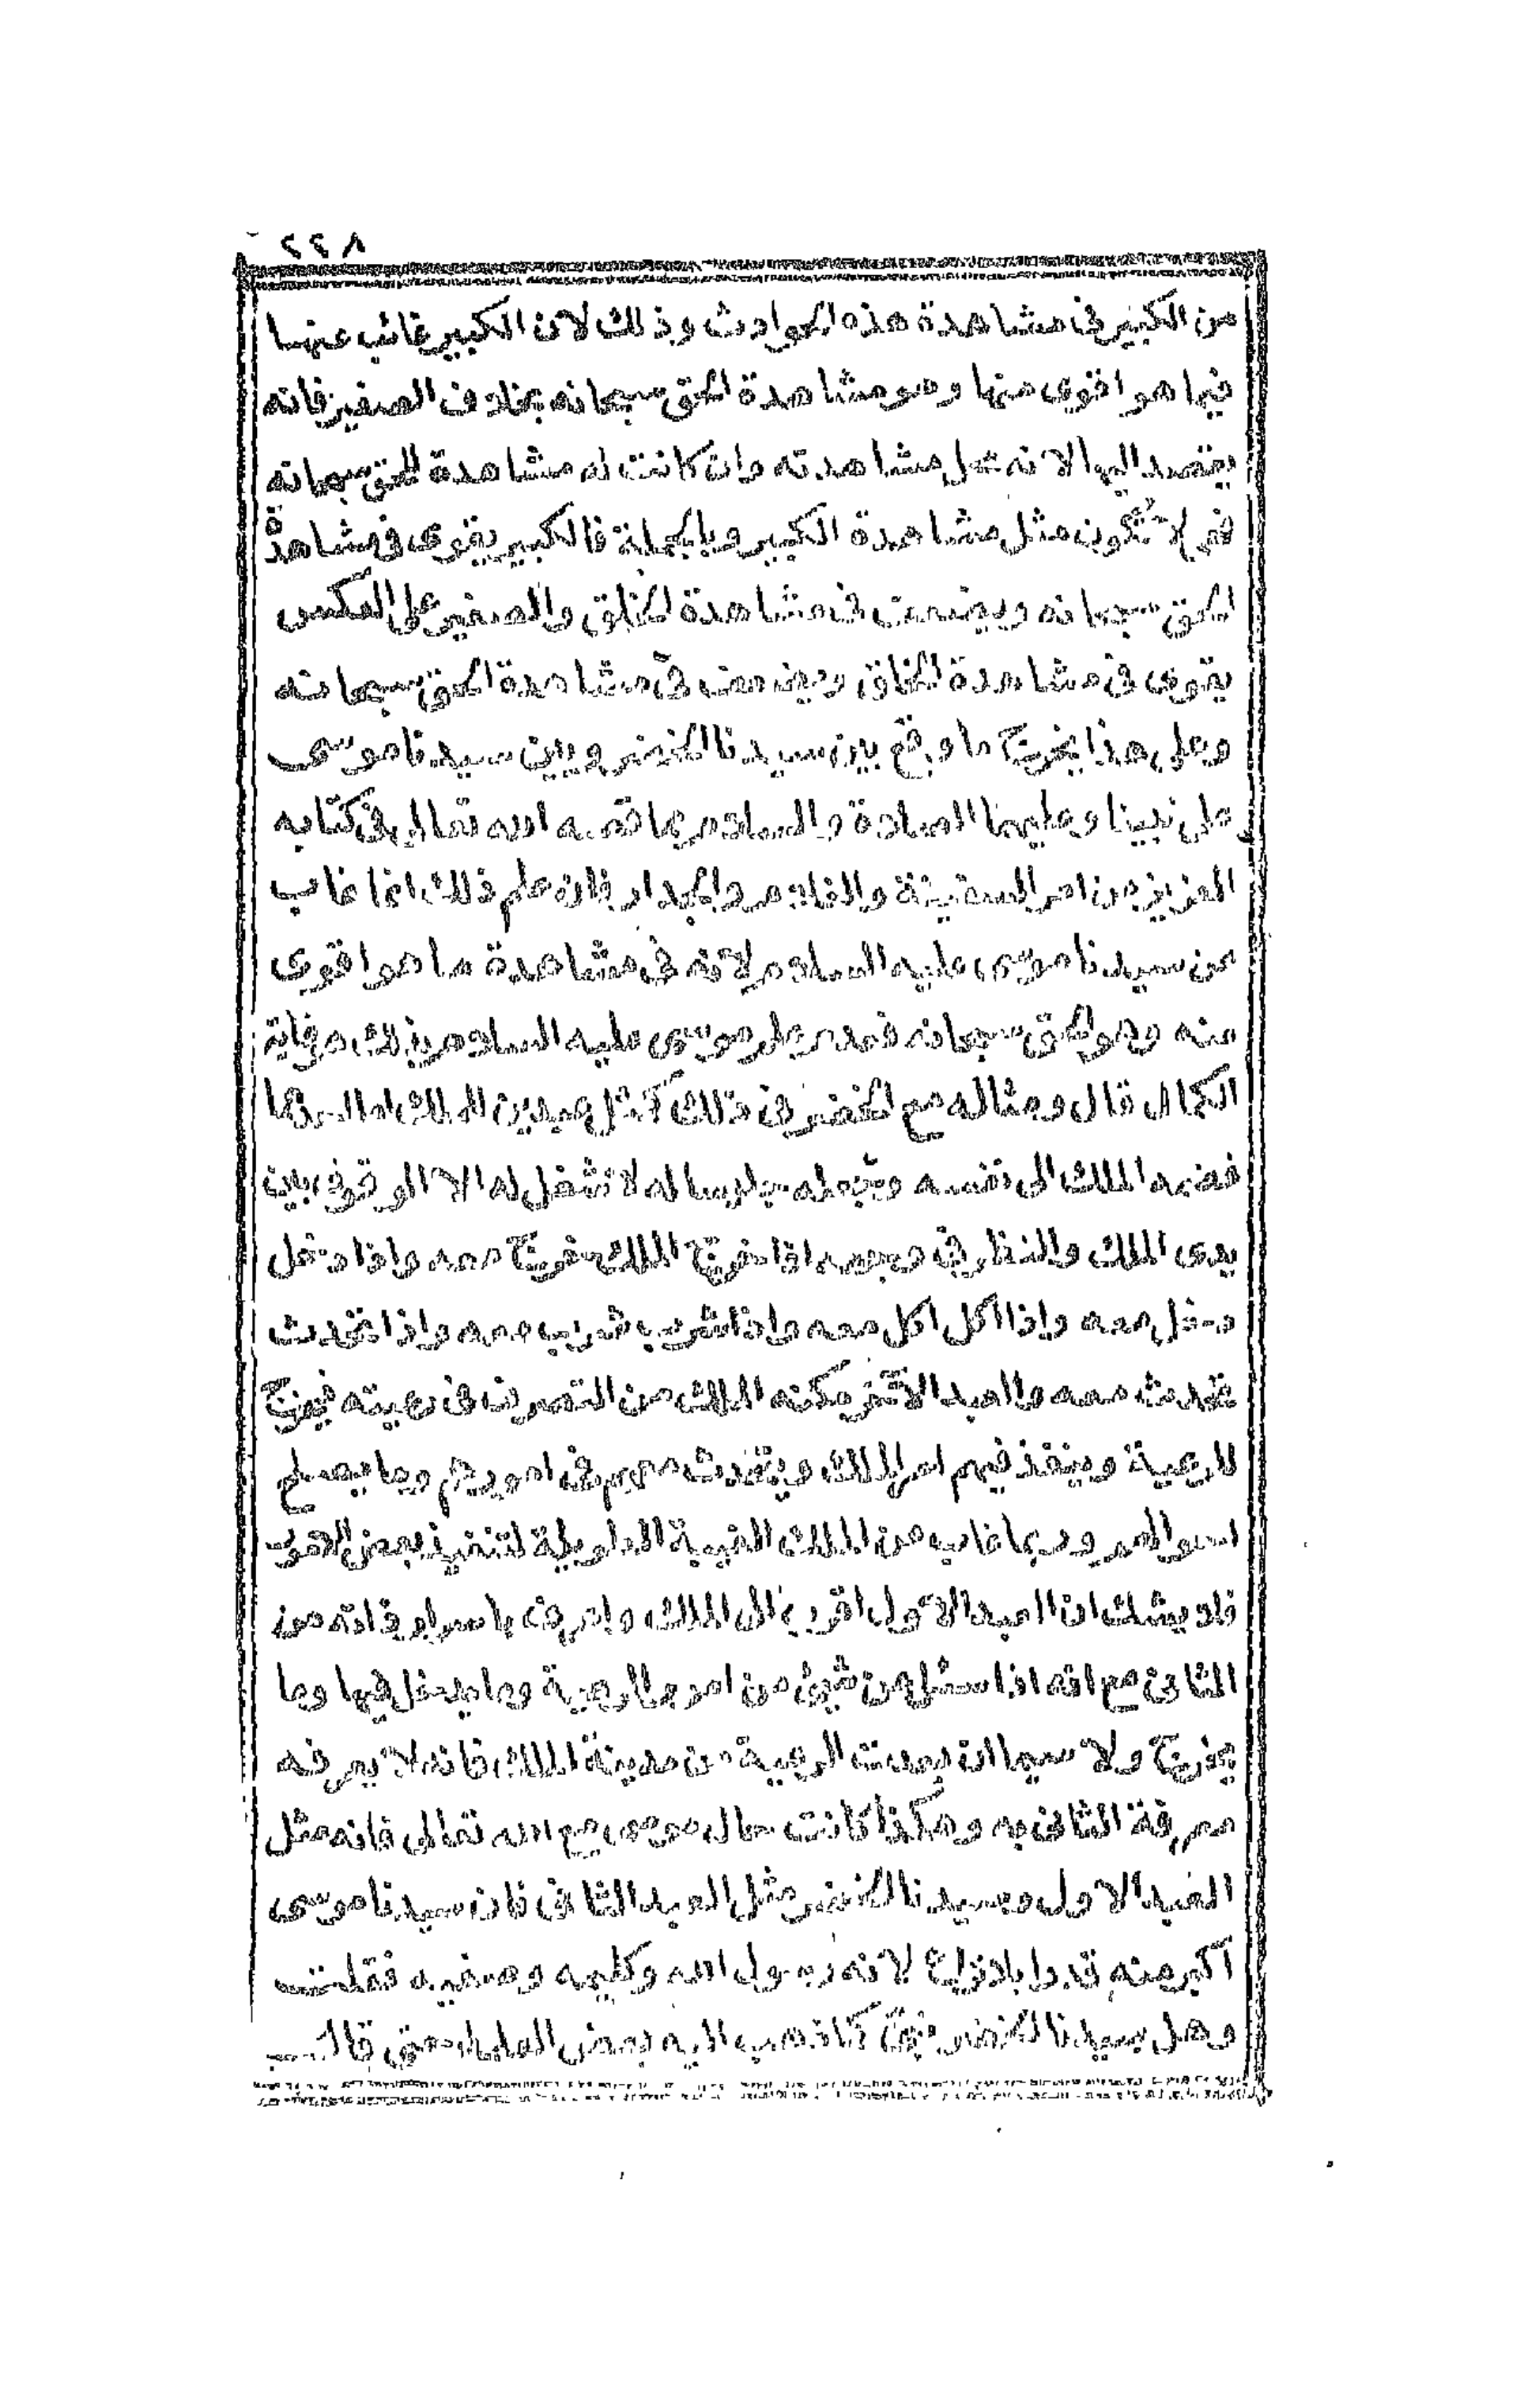 ٢٢٨
من الكبير في مشاهدة هذه الحوادث وذلك لان الكبير غائب عنها
فيما هو اقوى منها وهو مشاهدة الحق سبحانه بخلاف الصغير فانه
يقصد اليها لانه محل مشاهدته وان كانت له مشاهدة للحق سبحانه
فهي لا تكون مثل مشاهدة الكبير وبالجملة فالكبير يقوى في مشاهدة
الحق سبحانه ويضعف في مشاهدة الخلق والصغير على العكس
يقوى في مشاهدة الخلق ويضعف في مشاهدة الحق سبحانه
وعلى هذا يخرج ما وقع بين سيدنا الخضر وبين سيدنا موسى
على نبينا وعليهما الصلاة والسلام مما قصه الله تعالى في كتابه
العزيز من امر السفينة والغلام والجدار فان علم ذلك انما غاب
عن سيدنا موسى عليه السلام لانه في مشاهدة ما هو اقوى
منه وهو الحق سبحانه فعدم علم موسى عليه السلام بذلك هو غاية
الكمال قال ومثاله مع الخضر في ذلك كمثل عبدين للملك اما احدهما
فضمه الملك الى نفسه وجعله جليسا له لا شغل له الا الوقوف بين
يدي الملك والنظر في وجهه اذا خرج الملك خرج معه واذا دخل
دخل معه واذا اكل اكل معه واذا شرب شرب معه واذا تحدث
تحدث معه والعبد الآخر مكنه الملك من التصرف في رعيته فيخرج
للرعية وينفذ فيهم امر الملك ويتحدث معهم في امورهم وما يصلح
احوالهم وربما غاب عن الملك الغيبة الطويلة لتنفيذ بعض الامور
فلا يشك ان العبد الاول اقرب الى الملك واعرف باسرار ذاته من
الثاني مع انه اذا سئل عن شيئ من امور الرعية وما يدخل فيها وما
يخرج ولا سيما ان بعدت الرعية من مدينة الملك فانه لا يعرفه
معرفة الثاني به وهكذا كانت حال موسى مع الله تعالى فانه مثل
العبد الاول وسيدنا الخضر مثل العبد الثاني فان سيدنا موسى
اكبر منه قدرا بلا نزاع لانه رسول الله وكليمه وصفيه فقلت
وهل سيدنا الخضر نبي كما ذهب اليه بعض العلماء حتى قال